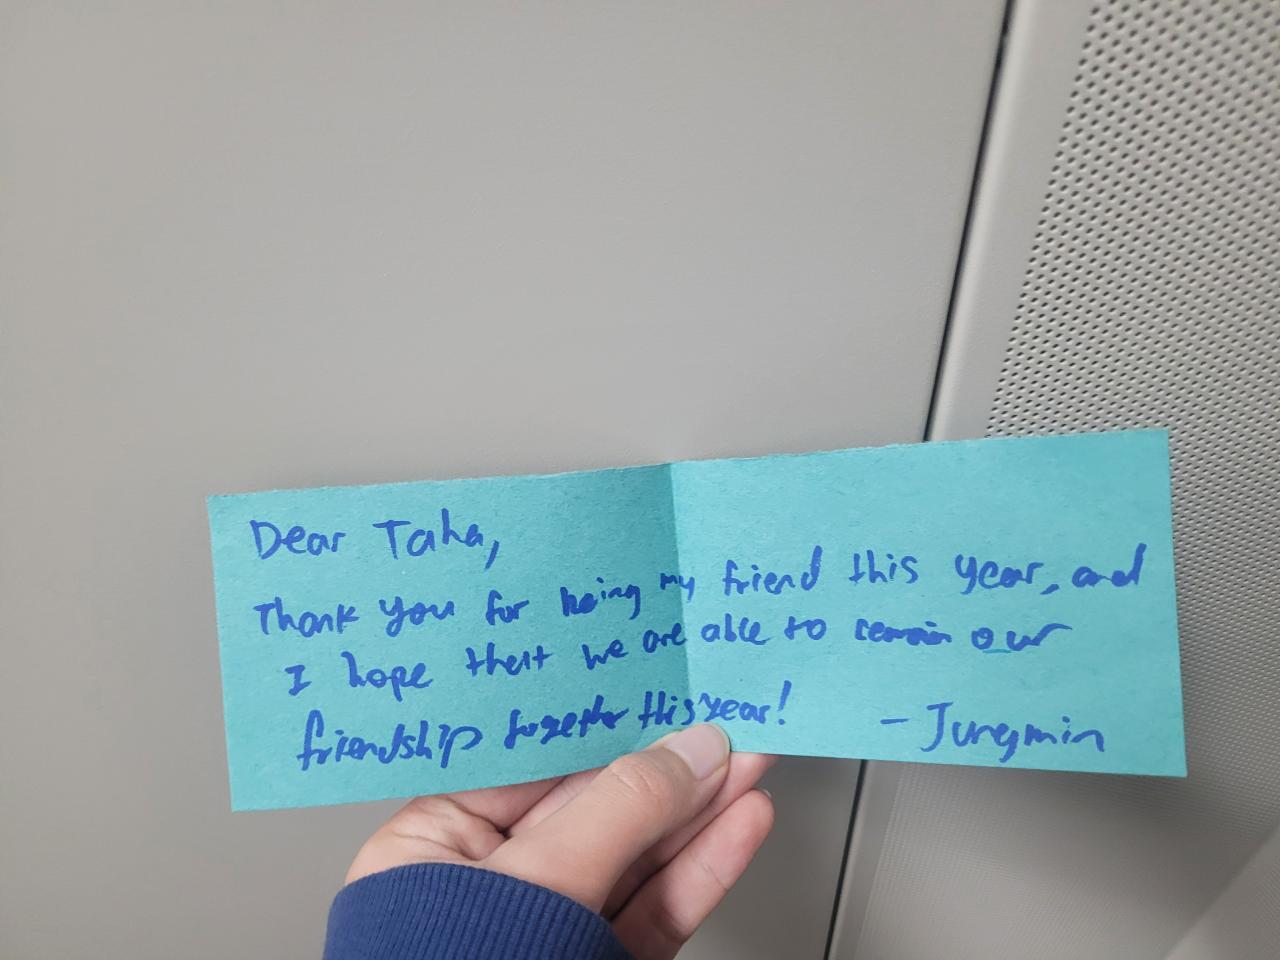 Dear Taha,
Thank you for being my friend this year, and
I hope that we are able to remain our
friendship together this year!
- Jungmin